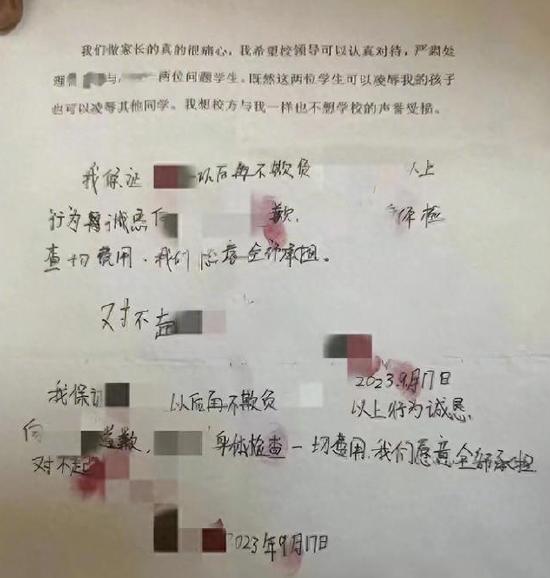 我们做家长的真的很痛心，我希望校领导可以认真对待，严肃处
理 与 两位问题学生。既然这两位学生可以凌辱我的孩子
也可以凌辱其他同学。我想校方与我一样也不想学校的声誉受损。
我保证 以后再不欺负 以上
行为 诚恳向 歉, 体检
查一切费用,我们愿意全部承担。
对不起
2023.9月17日
我保证 以后再不欺负 以上行为诚恳
向 道歉, 身体检查一切费用,我们愿意全部承担
对不起
2023年9月17日